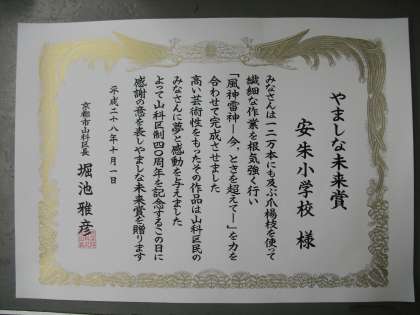 やましな未来賞
安朱小学校 様
みなさんは一二万本にも及ぶ爪楊枝を使って
繊細な作業を根気強く行い
「風神雷神ー今、ときを超えてー」を力を
合わせて完成させました
高い芸術性をもったその作品は山科区民の
みなさんに夢と感動を与えました
よって山科区制四〇周年を記念するこの日に
感謝の意を表しやましな未来賞を贈ります
平成二十八年十月一日
京都市山科区長 堀池雅彦